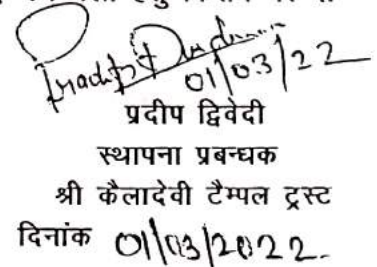 01/03/22
प्रदीप द्विवेदी
स्थापना प्रबन्धक
श्री कैलादेवी टैम्पल ट्रस्ट
दिनांक 01/03/2022